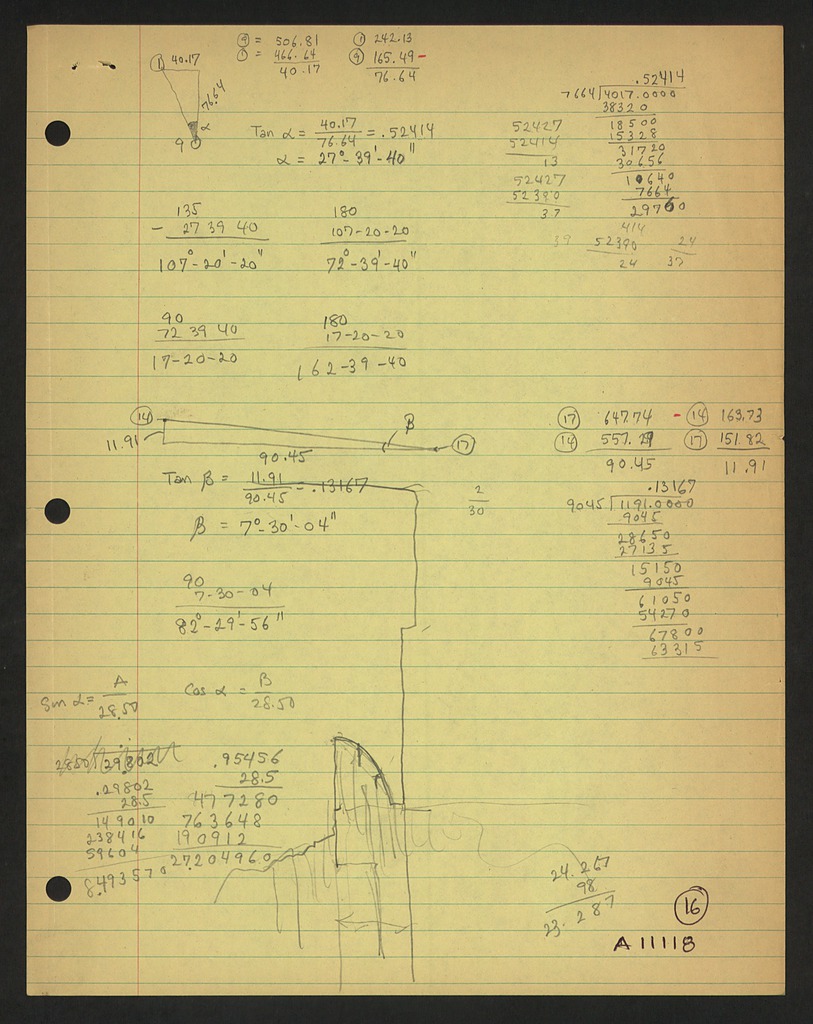 ⑨ = 506.81
① = 466.64
40.17
① 242.13
⑨ 165.49 -
76.64
① 40.17
76.64
α
9
Tan α = 40.17 / 76.64 = .52414
α = 27° - 39' - 40"
52427
52414
13
52427
52390
37
.52414
7664 4017.0000
38320
18500
15328
31720
30656
10640
7664
29760
414
39 52390 24
24 37
135
- 27 39 40
107° - 20' - 20"
180
107 - 20 - 20
72° - 39' - 40"
90
72 39 40
17 - 20 - 20
180
17 - 20 - 20
162 - 39 - 40
⑭ β ⑰
11.91
90.45
⑰ 647.74 - ⑭ 163.73
⑭ 557.29 ⑰ 151.82
90.45 11.91
Tan β = 11.91 / 90.45 = .13167
β = 7° - 30' - 04"
2
30
.13167
9045 1191.0000
9045
28650
27135
15150
9045
61050
54270
67800
63315
90
7 - 30 - 04
82° - 29' - 56"
Sin α = A / 28.50
Cos α = B / 28.50
2850 .29802
.29802
28.5
149010
238416
59604
8.493570
.95456
28.5
477280
763648
190912
27.204960
24.267
98
23.287
⑯
A11118